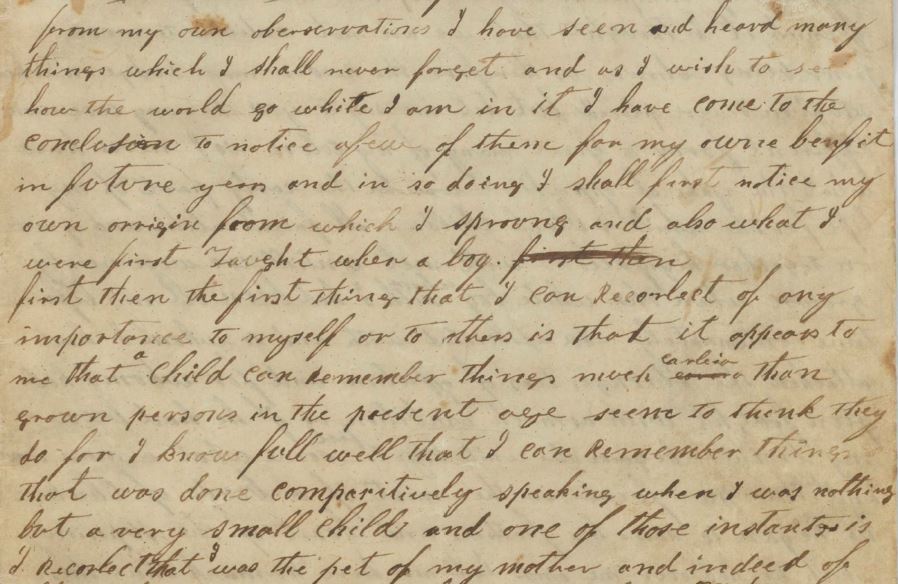 from my own oberservations I have seen and heard many
things which I shall never forget and as I wish to se
how the world go while I am in it I have come to the
conclusion to notice afew of them for my owne benfit
in future years and in so doing I shall first notice my
own orrigin from which I sproung and also what I
were first Taught when a boy. first then
first then the first thing that I can Recorlect of any
importance to myself or to others is that it appears to
me that a Child can Remember things much earlier than
grown persons in the present age seem to think they
do for I know full well that I can Remember things
that was done comparitively speaking when I was nothing
but a very small Child and one of those instants is
I Recorlect that I was the pet of my mother and indeed of